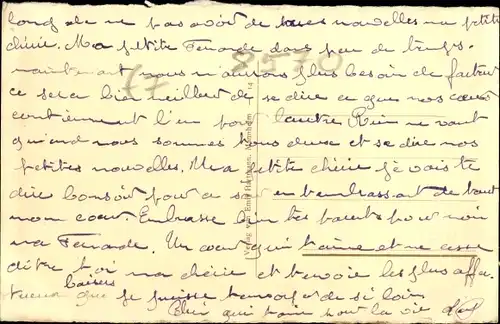 long de ne pas avoir de tes nouvelles ma petite
chérie. Ma petite Fernande dans peu de temps.
maintenant nous n'aurons plus besoin de facteur
ce sera bien meilleur de se dire ce que nos cœurs
contiennent l'un pour l'autre Rien ne vaut
quand nous sommes tous deux et se dire nos
petites nouvelles. Ma petite chérie je vais te
dire bonsoir pour ce soir en t'embrassant de tout
mon cœur. Embrasse bien tes parents pour moi
ma Fernande. Un cœur qui t'aime et ne cesse
d'être à toi ma chérie et t'envoie les plus affec
tueux baisers que je puisse t'envoyer de si loin
Celui qui t'aime pour la vie
8570
77
Verlag von Emil Hartmann, Mannheim